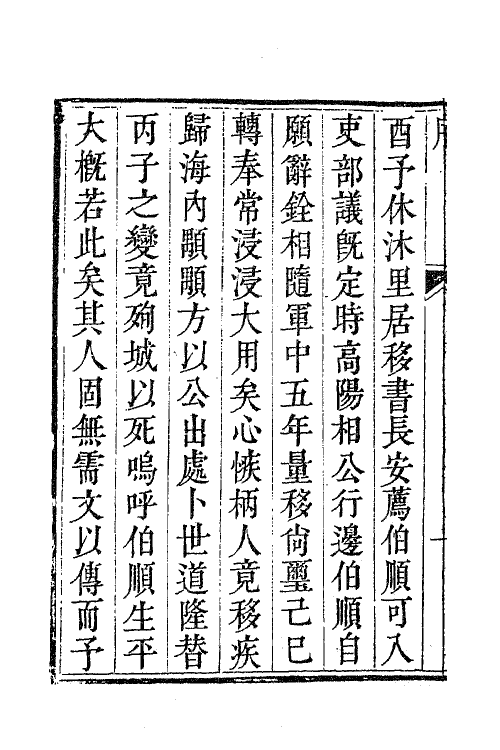 酉予休沐里居移書長安薦伯順可入
吏部議旣定時高陽相公行邊伯順自
願辭銓相隨軍中五年量移尙璽己巳
轉奉常浸浸大用矣心悵柄人竟移疾
歸海內顒顒方以公出處卜世道隆替
丙子之變竟殉城以死嗚呼伯順生平
大槪若此矣其人固無需文以傳而予